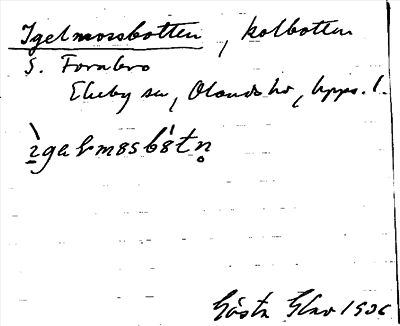 Igelmossbotten, kolbotten
S. Fornbro
Ekeby sn, Olands hd, Upps. l.
ìgəlmɷsbɷ̀tn̥
Gösta 1906